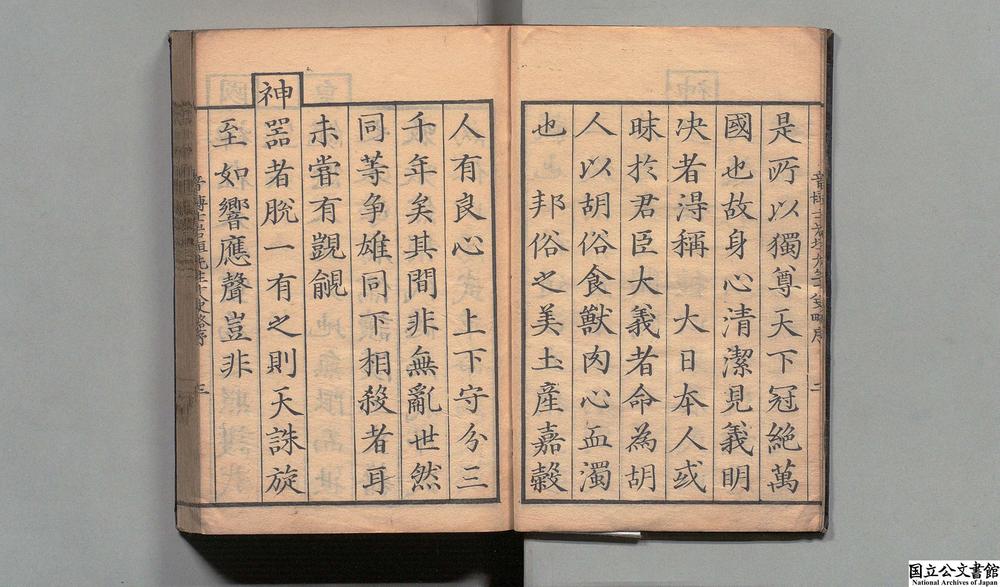 是所以獨尊天下冠絶萬
國也故身心清潔見義明
决者淂稱 大日本人或
昧於君臣大義者命為胡
人以胡俗食獸肉心血濁
也 邦俗之美土產嘉穀
人有良心 上下守分三
千年矣其間非無亂世然
同等争雄同下相殺者耳
未甞有覬覦
神噐者脫一有之則天誅旋
至如響應聲豈非
国立公文書館
National Archives of Japan